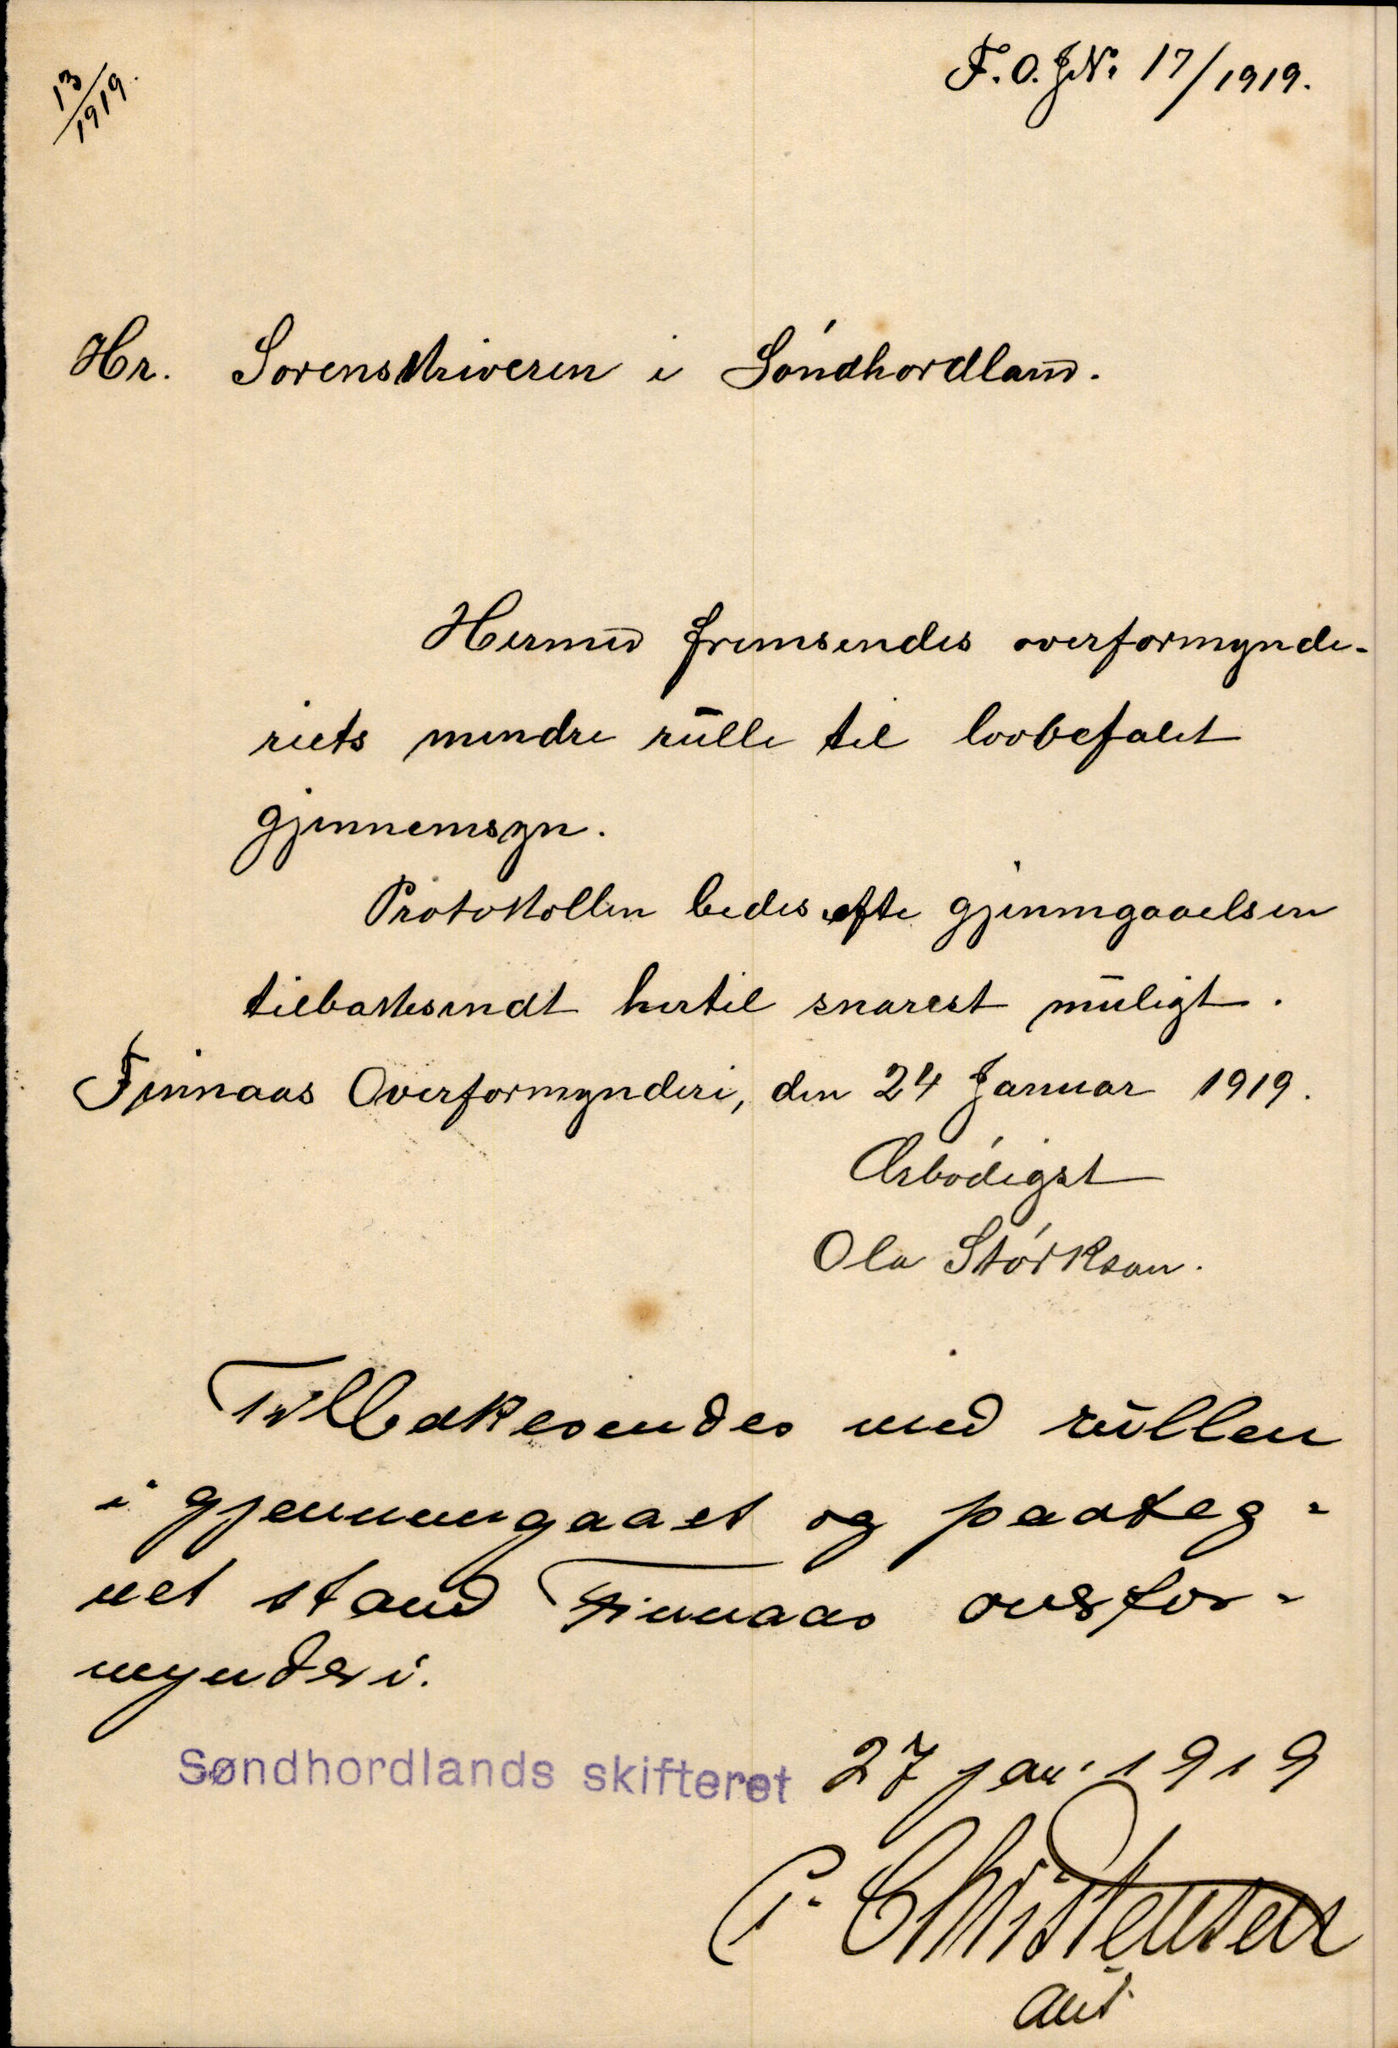 13/1919.
F.O.J.№ 17/1919.
Hr. Sorenskriveren i Søndhordland.
Hermed fremsendes overformynde-
riets mindre rulle til lovbefalet
gjennemsyn.
Protokollen bedes efte gjenmgaaelsen
tilbakesendt hertil snarest muligt.
Finnaas Overformynderi, den 24 Januar 1919.
Ærbødigst
Ola Størkson.
Tilbakesendes med rullen
i gjennemgaaet og paateg-
net stand Finnaas overfor-
mynderi.
Søndhordlands skifteret 27 jan. 1919
C. Christensen
aut